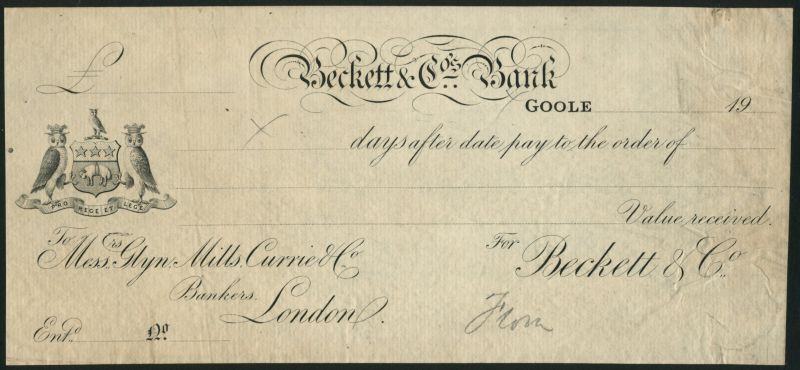 £
Beckett & Co's. Bank
GOOLE 19
days after date pay to the order of
PRO REGE ET LEGE
Value received.
To Messrs. Glyn, Mills, Currie & Co.
For Beckett & Co.
Bankers.
London.
From
Entd. No.